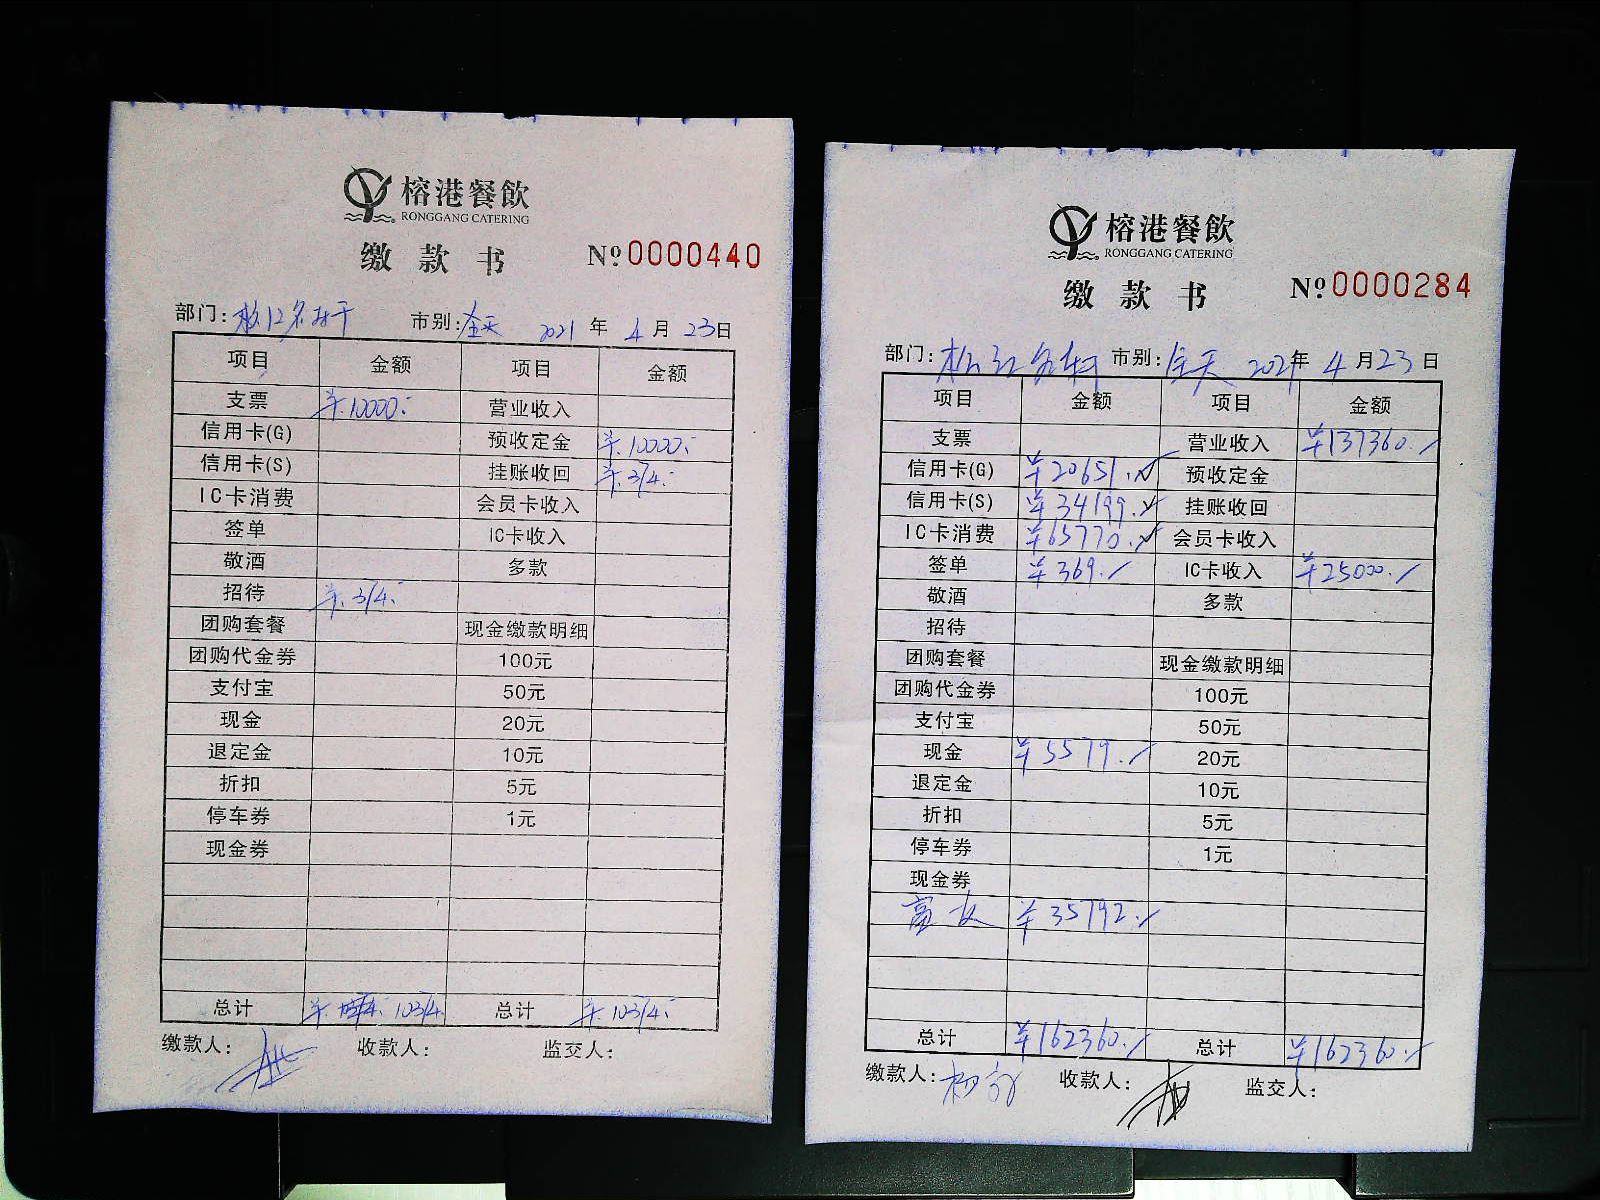 榕港餐飲
RONGGANG CATERING
缴款书 №0000440
部门: 市别:全天 2021年4月23日
项目 金额 项目 金额
支票 ¥10000.- 营业收入
信用卡(G) 预收定金 ¥10000.-
信用卡(S) 挂账收回 ¥314.-
IC卡消费 会员卡收入
签单 IC卡收入
敬酒 多款
招待 ¥314.-
团购套餐 现金缴款明细
团购代金券 100元
支付宝 50元
现金 20元
退定金 10元
折扣 5元
停车券 1元
现金券
总计 ¥10314. 总计 ¥10314.-
缴款人: 收款人: 监交人:
榕港餐飲
RONGGANG CATERING
缴款书 №0000284
部门: 市别:全天 2021年4月23日
项目 金额 项目 金额
支票 营业收入 ¥137360.
信用卡(G) ¥20651. 预收定金
信用卡(S) ¥34199. 挂账收回
IC卡消费 ¥65770. 会员卡收入
签单 ¥369. IC卡收入 ¥25000.
敬酒 多款
招待
团购套餐 现金缴款明细
团购代金券 100元
支付宝 50元
现金 ¥5579. 20元
退定金 10元
折扣 5元
停车券 1元
现金券
¥35792.
总计 ¥162360. 总计 ¥162360.
缴款人: 收款人: 监交人: